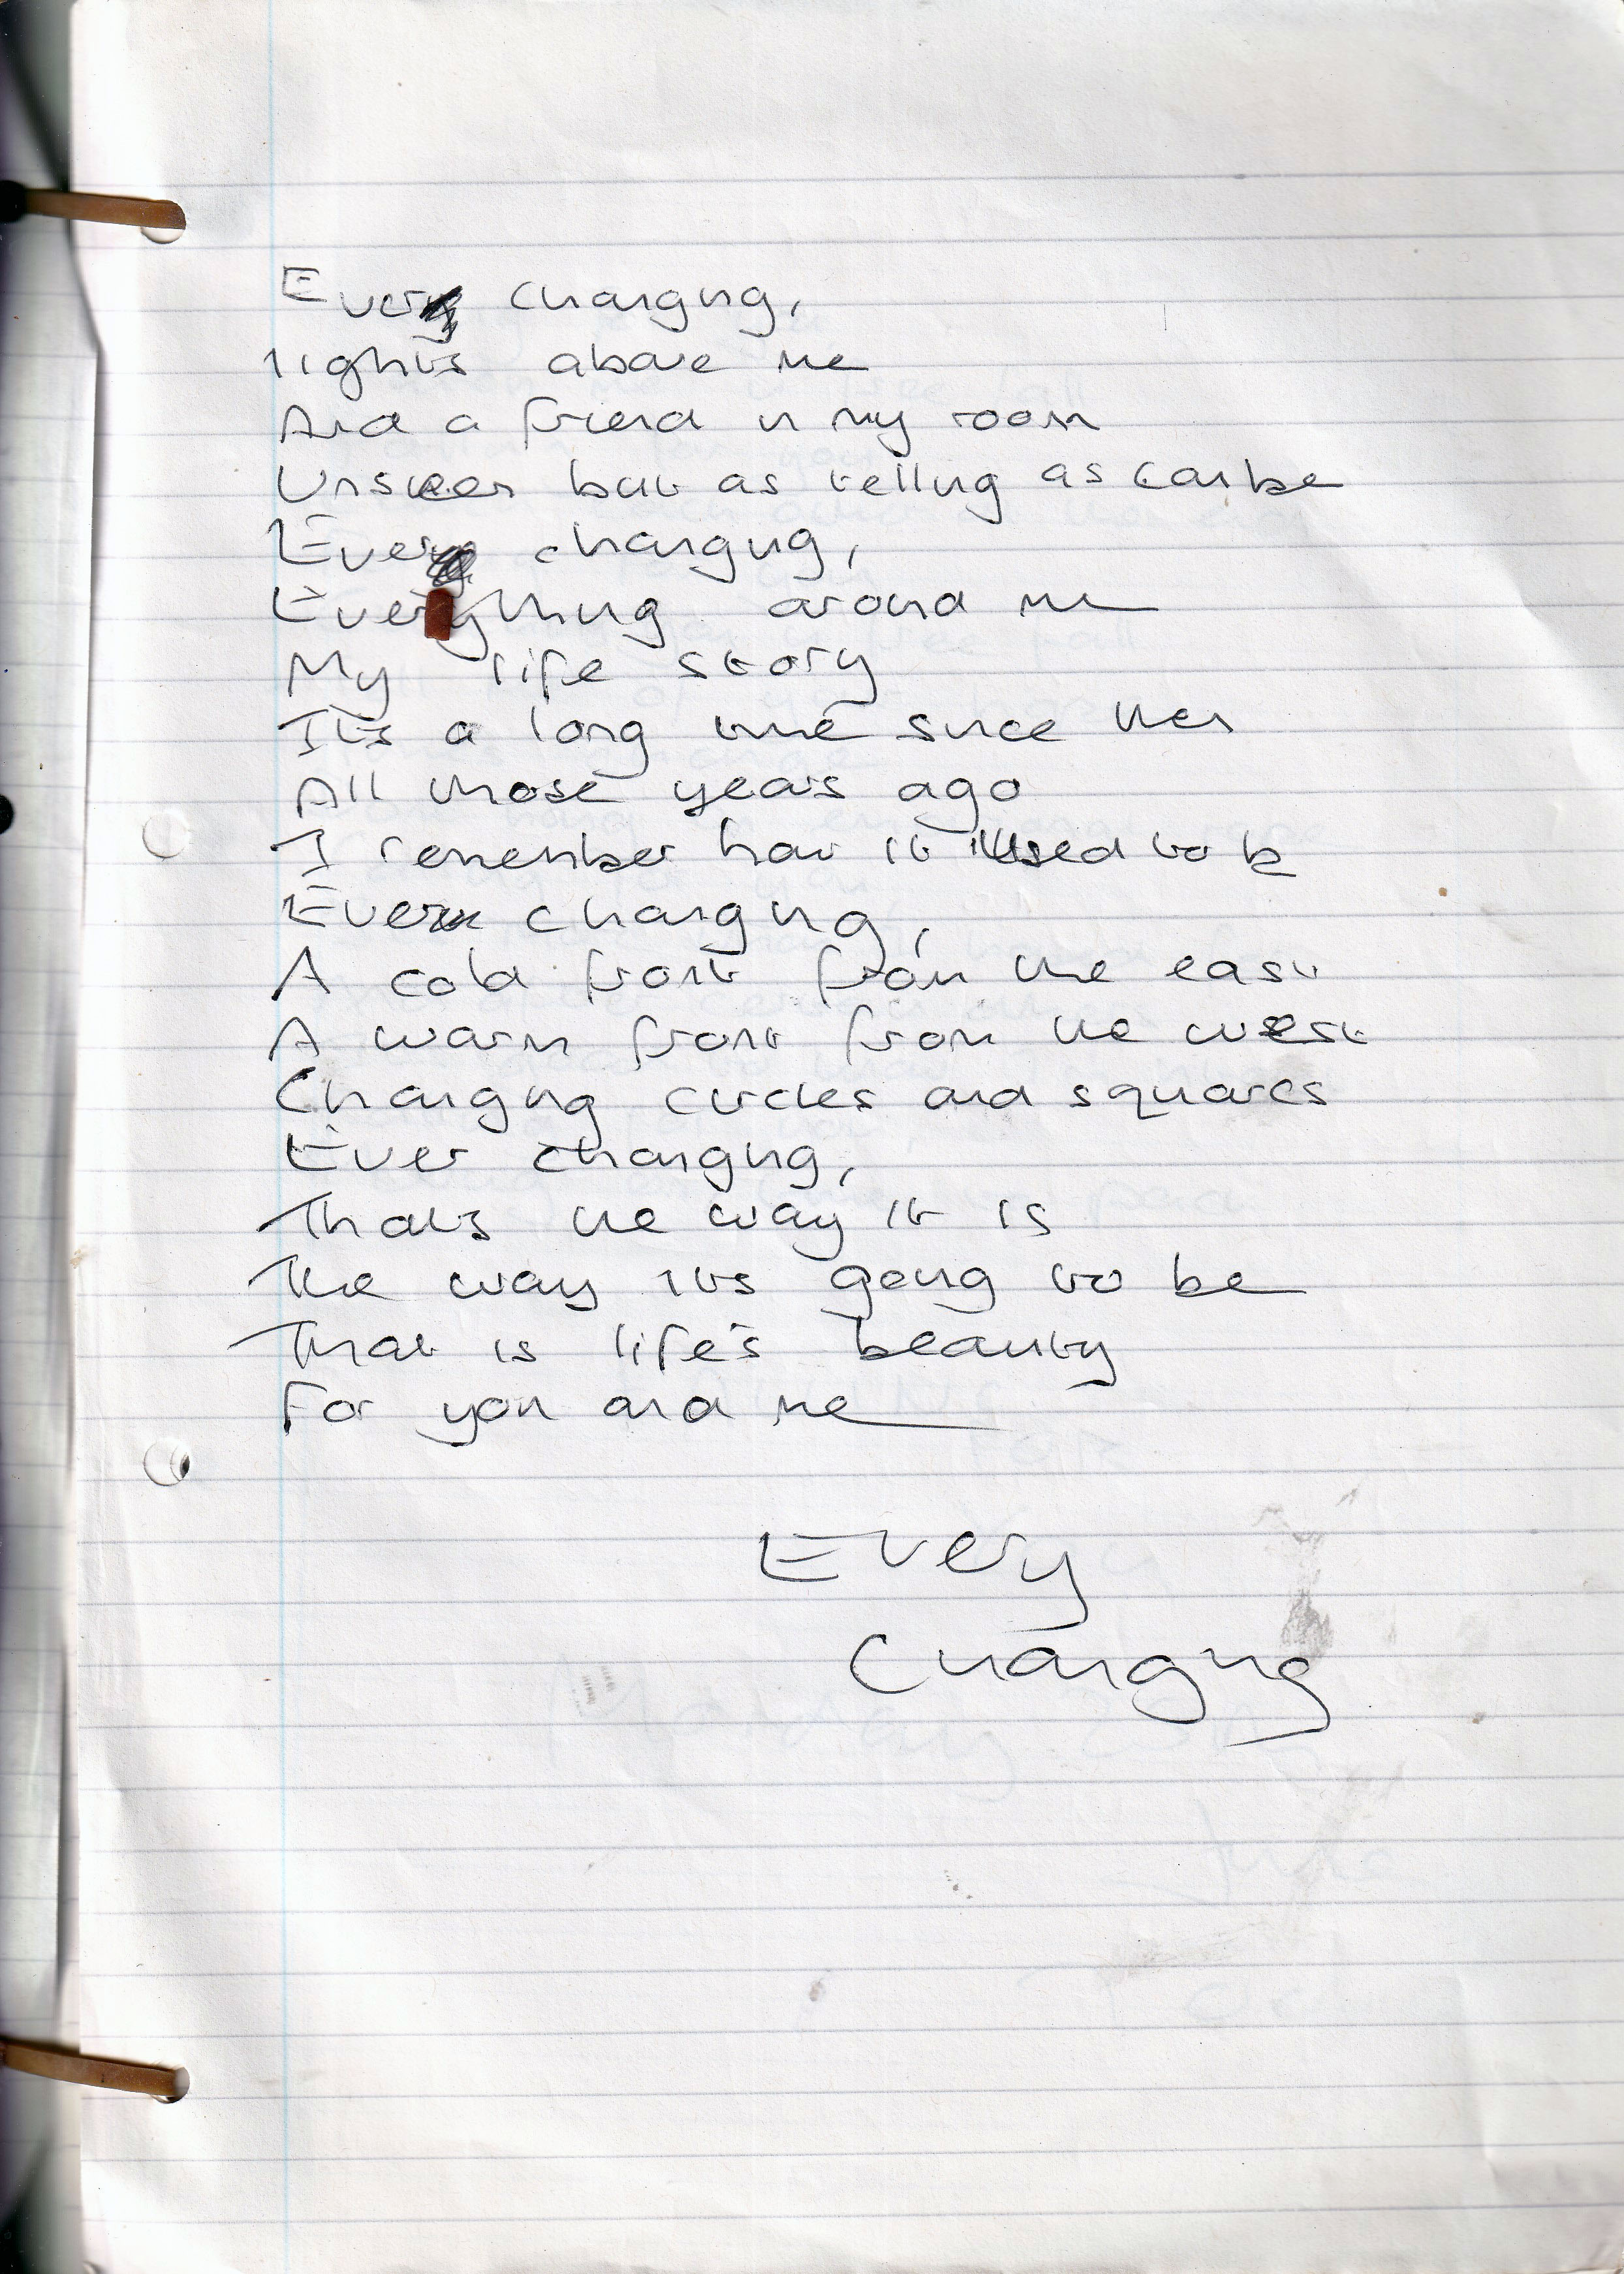 Ever changing,
lights above me
And a friend in my room
Unseen but as telling as can be
Ever changing,
Everything around me
My life story
It's a long time since then
All those years ago
I remember how it used to b
Ever changing,
A cold front from the east
A warm front from the west
Changing circles and squares
Ever changing,
That's the way it is
The way its going to be
That is life's beauty
For you and me
Every
Changing